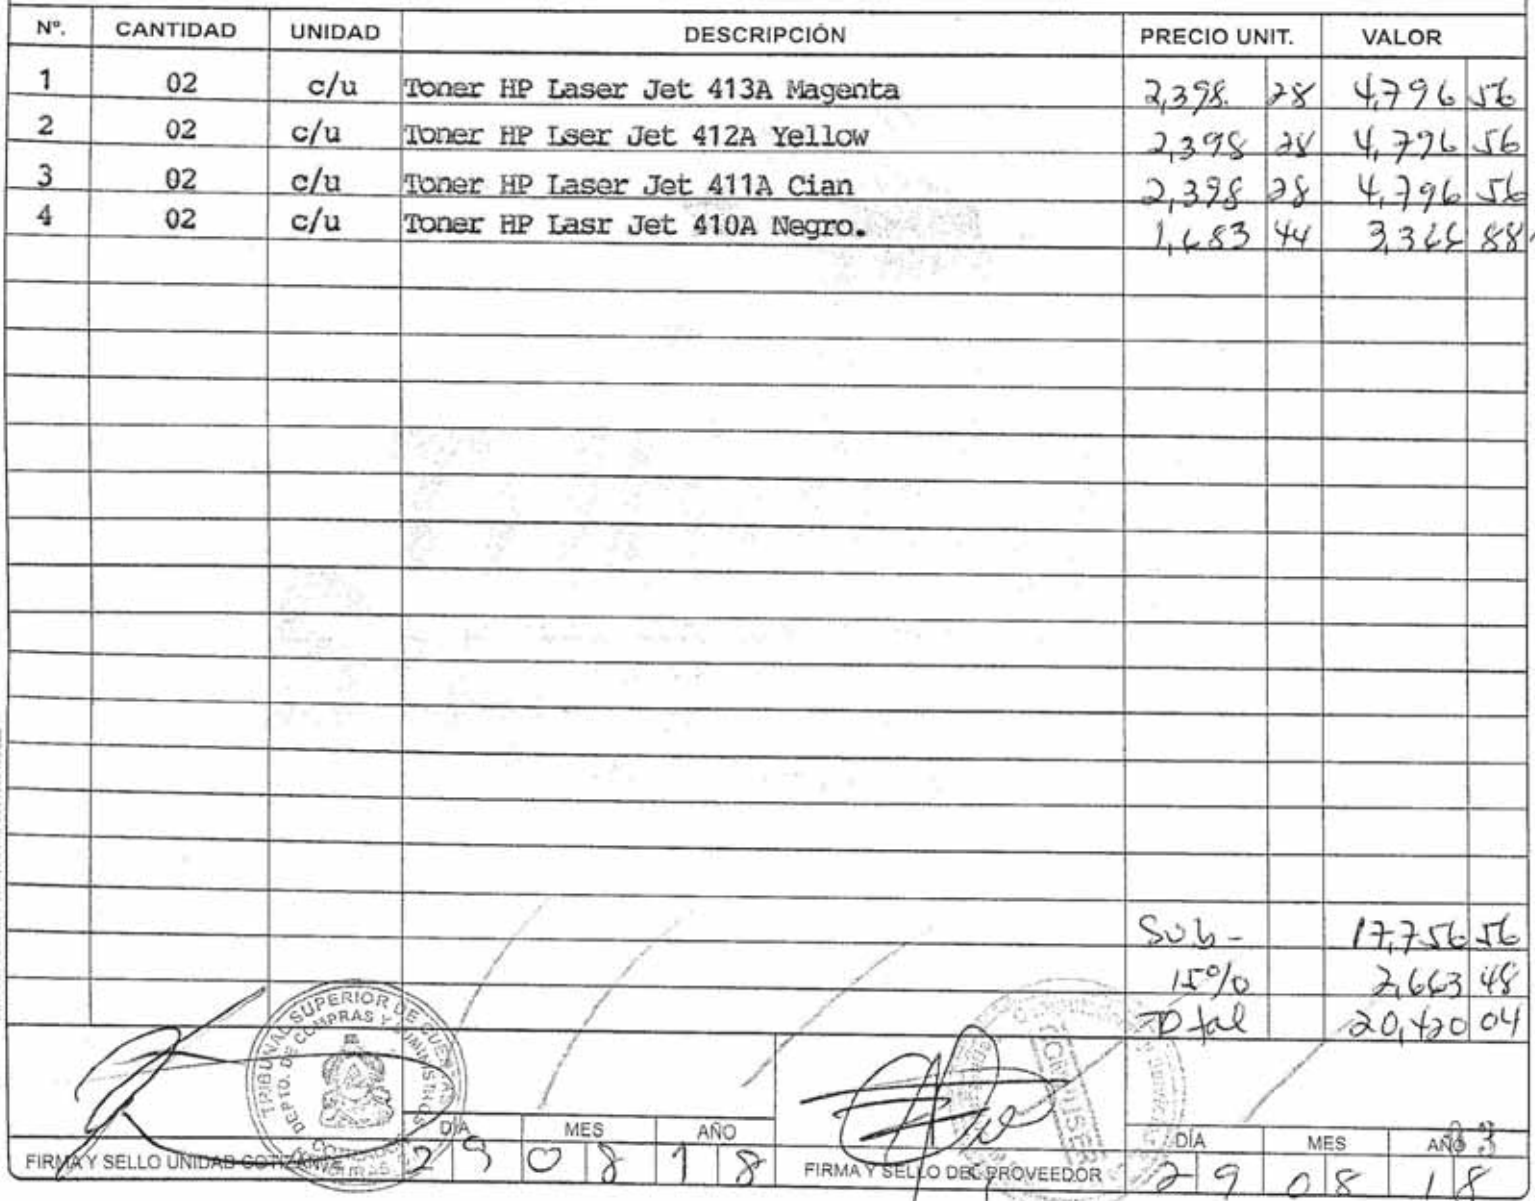 Nº. CANTIDAD UNIDAD DESCRIPCIÓN PRECIO UNIT. VALOR
1 02 c/u Toner HP Laser Jet 413A Magenta 2,398. 28 4,796 56
2 02 c/u Toner HP Lser Jet 412A Yellow 2,398 28 4,796 56
3 02 c/u Toner HP Laser Jet 411A Cian 2,398 28 4,796 56
4 02 c/u Toner HP Lasr Jet 410A Negro. 1,683 44 3,366 88
Sub- 17,756 56
15% 2,663 48
Total 20,420 04
TRIBUNAL SUPERIOR DE CUENTAS
DEPTO. DE COMPRAS Y SUMINISTROS
DÍA MES AÑO
FIRMA Y SELLO UNIDAD COTIZANTE 29 08 18
DÍA MES AÑO
FIRMA Y SELLO DEL PROVEEDOR 29 08 18